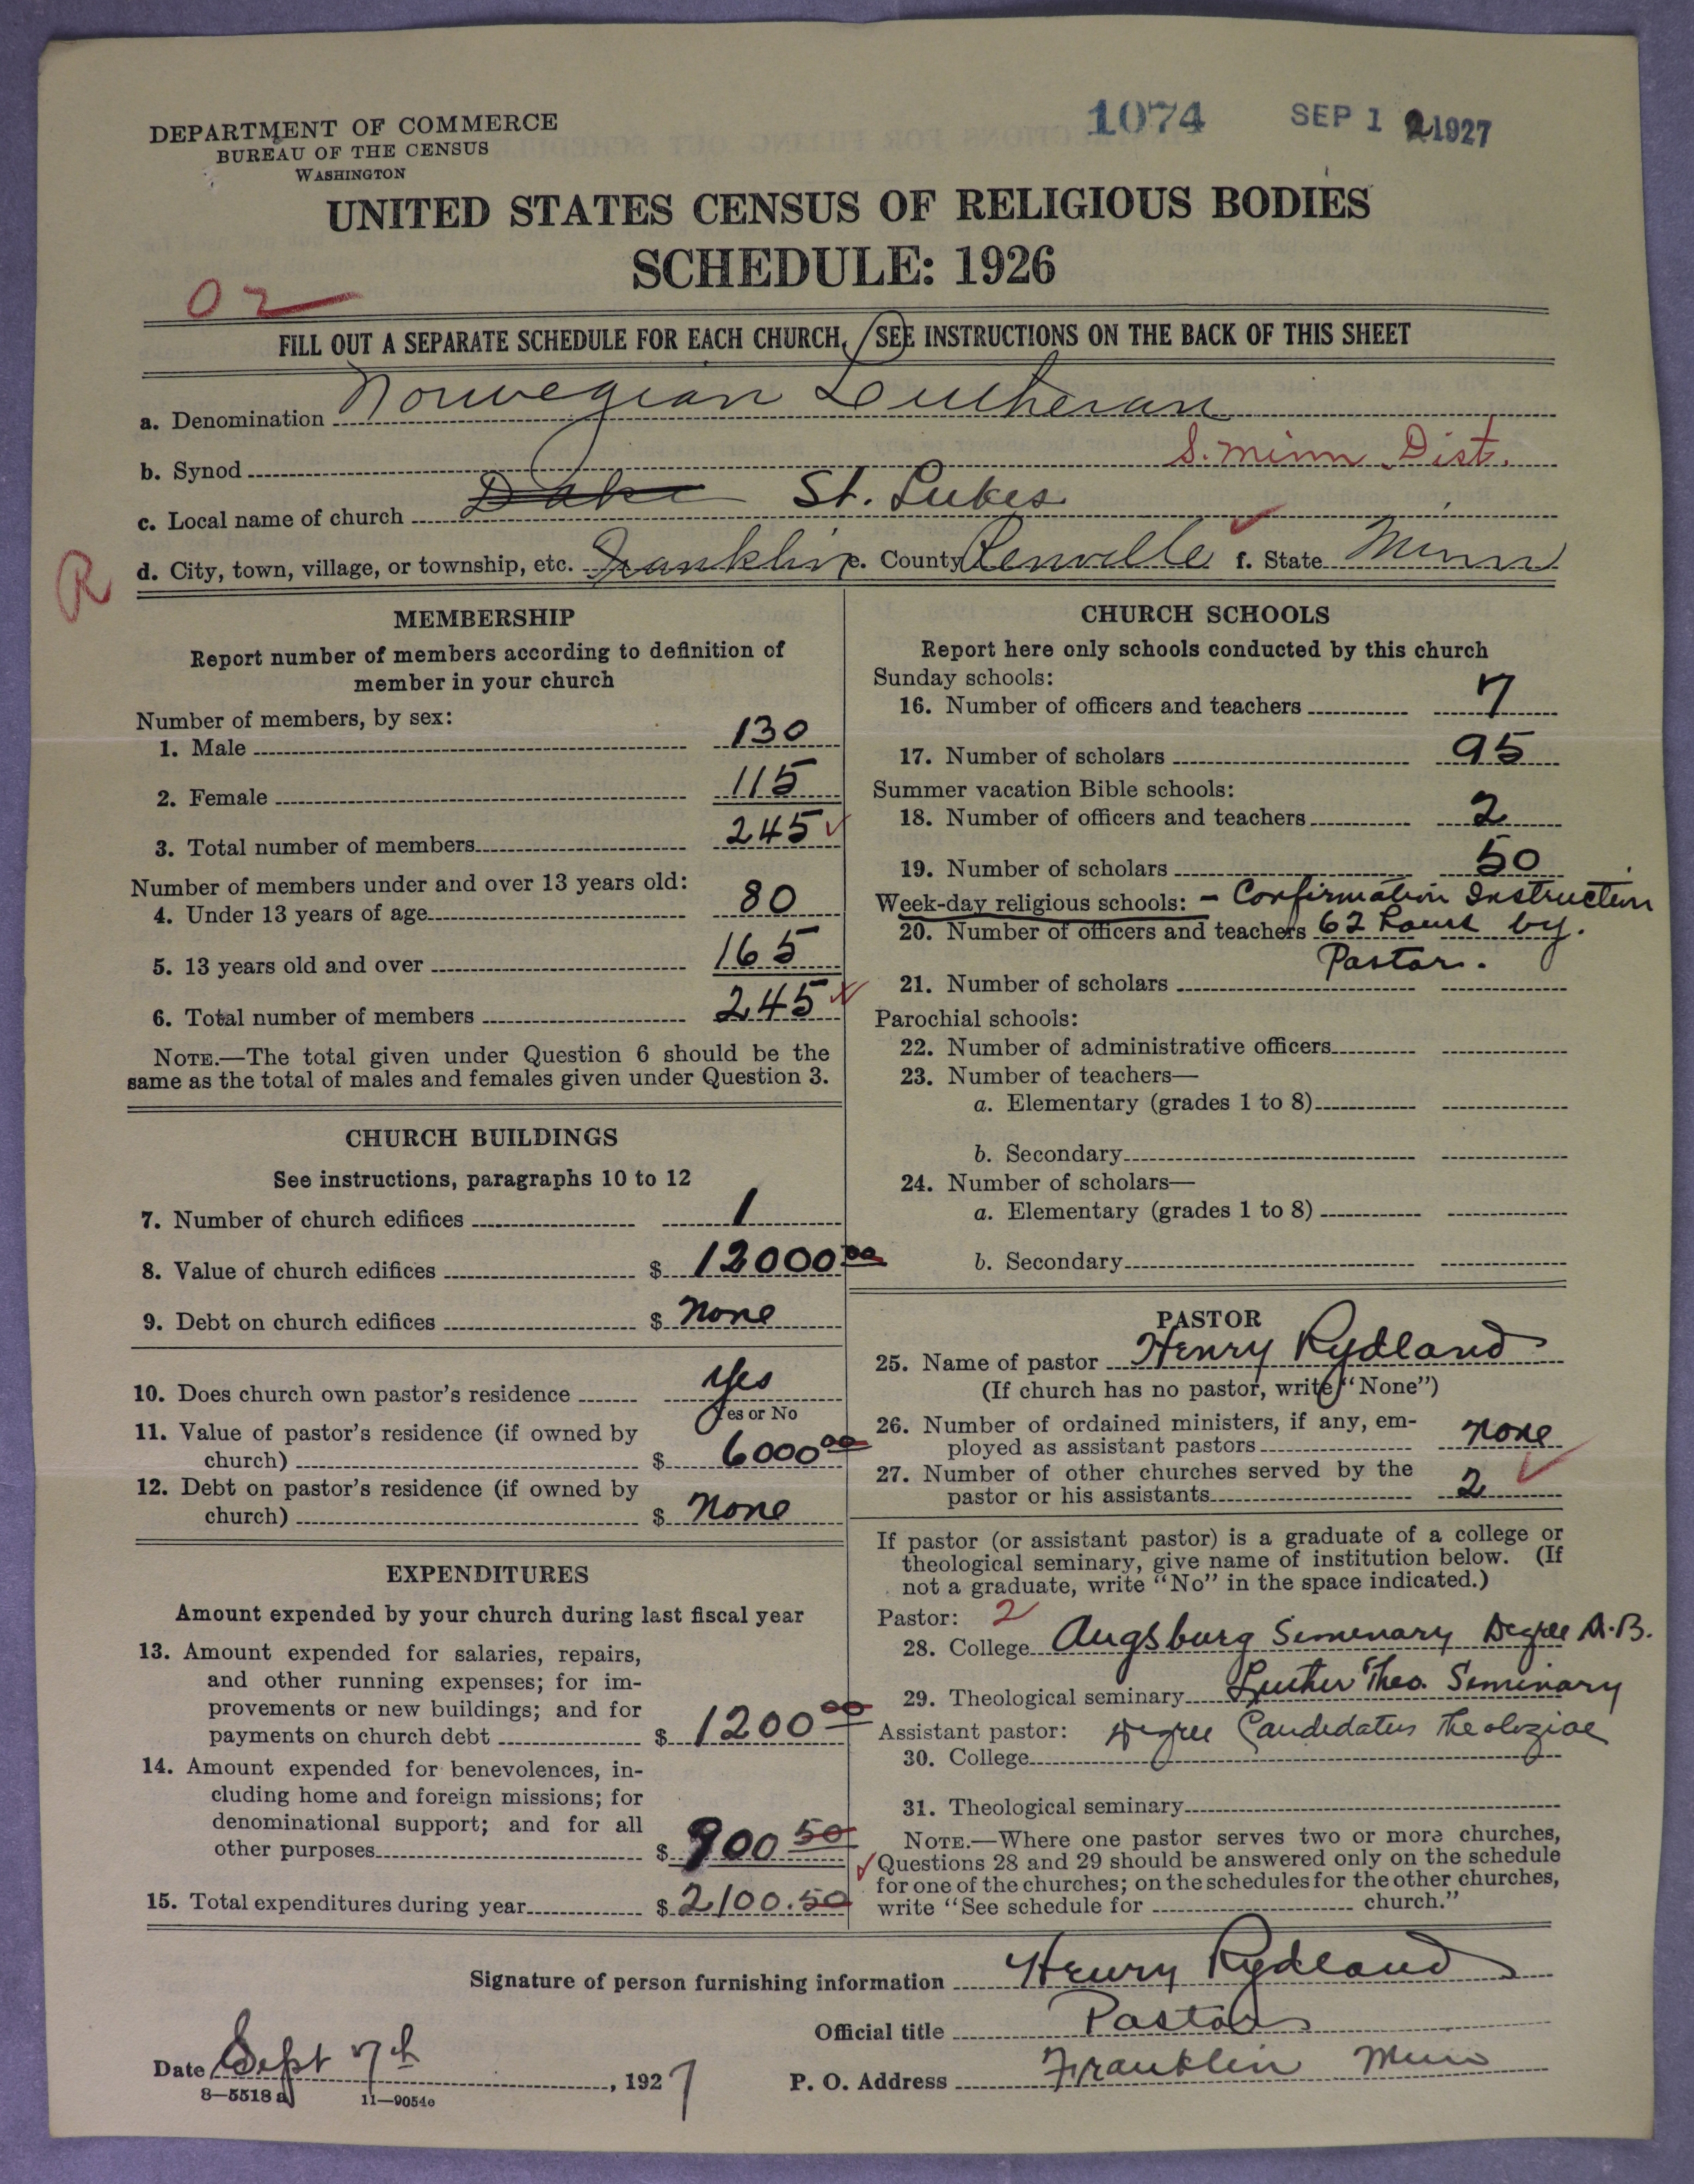 DEPARTMENT OF COMMERCE
BUREAU OF THE CENSUS
WASHINGTON
1074 SEP 12 1927
UNITED STATES CENSUS OF RELIGIOUS BODIES
SCHEDULE: 1926
02
FILL OUT A SEPARATE SCHEDULE FOR EACH CHURCH. SEE INSTRUCTIONS ON THE BACK OF THIS SHEET
a. Denomination Norwegian Lutheran
b. Synod S. Minn Dist.
c. Local name of church St. Lukes
R
d. City, town, village, or township, etc. Franklin e. County Renville f. State Minn
MEMBERSHIP
Report number of members according to definition of
member in your church
Number of members, by sex:
1. Male 130
2. Female 115
3. Total number of members 245
Number of members under and over 13 years old:
4. Under 13 years of age 80
5. 13 years old and over 165
6. Total number of members 245
NOTE.—The total given under Question 6 should be the
same as the total of males and females given under Question 3.
CHURCH BUILDINGS
See instructions, paragraphs 10 to 12
7. Number of church edifices 1
8. Value of church edifices $ 12000.00
9. Debt on church edifices $ None
10. Does church own pastor's residence Yes
Yes or No
11. Value of pastor's residence (if owned by
church) $ 6000 00
12. Debt on pastor's residence (if owned by
church) $ None
EXPENDITURES
Amount expended by your church during last fiscal year
13. Amount expended for salaries, repairs,
and other running expenses; for im-
provements or new buildings; and for
payments on church debt $ 1200 00
14. Amount expended for benevolences, in-
cluding home and foreign missions; for
denominational support; and for all
other purposes $ 900 50
15. Total expenditures during year $ 2100.50
CHURCH SCHOOLS
Report here only schools conducted by this church
Sunday schools:
16. Number of officers and teachers 7
17. Number of scholars 95
Summer vacation Bible schools:
18. Number of officers and teachers 2
19. Number of scholars 50
Week-day religious schools: - Confirmation Instruction
20. Number of officers and teachers 62 hours by.
Pastor.
21. Number of scholars
Parochial schools:
22. Number of administrative officers
23. Number of teachers—
a. Elementary (grades 1 to 8)
b. Secondary
24. Number of scholars—
a. Elementary (grades 1 to 8)
b. Secondary
PASTOR
25. Name of pastor Henry Rydland
(If church has no pastor, write "None")
26. Number of ordained ministers, if any, em-
ployed as assistant pastors None
27. Number of other churches served by the
pastor or his assistants 2
If pastor (or assistant pastor) is a graduate of a college or
theological seminary, give name of institution below. (If
not a graduate, write "No" in the space indicated.)
Pastor: 2
28. College Augsburg Seminary Degree A.B.
29. Theological seminary Luther Theo. Seminary
Assistant pastor: Degree Candidatus Theologiae
30. College
31. Theological seminary
NOTE.—Where one pastor serves two or more churches,
Questions 28 and 29 should be answered only on the schedule
for one of the churches; on the schedules for the other churches,
write "See schedule for church."
Signature of person furnishing information Henry Rydland
Official title Pastor
Date Sept 7th, 1927
P. O. Address Franklin Minn
8—5518 a 11—9054c